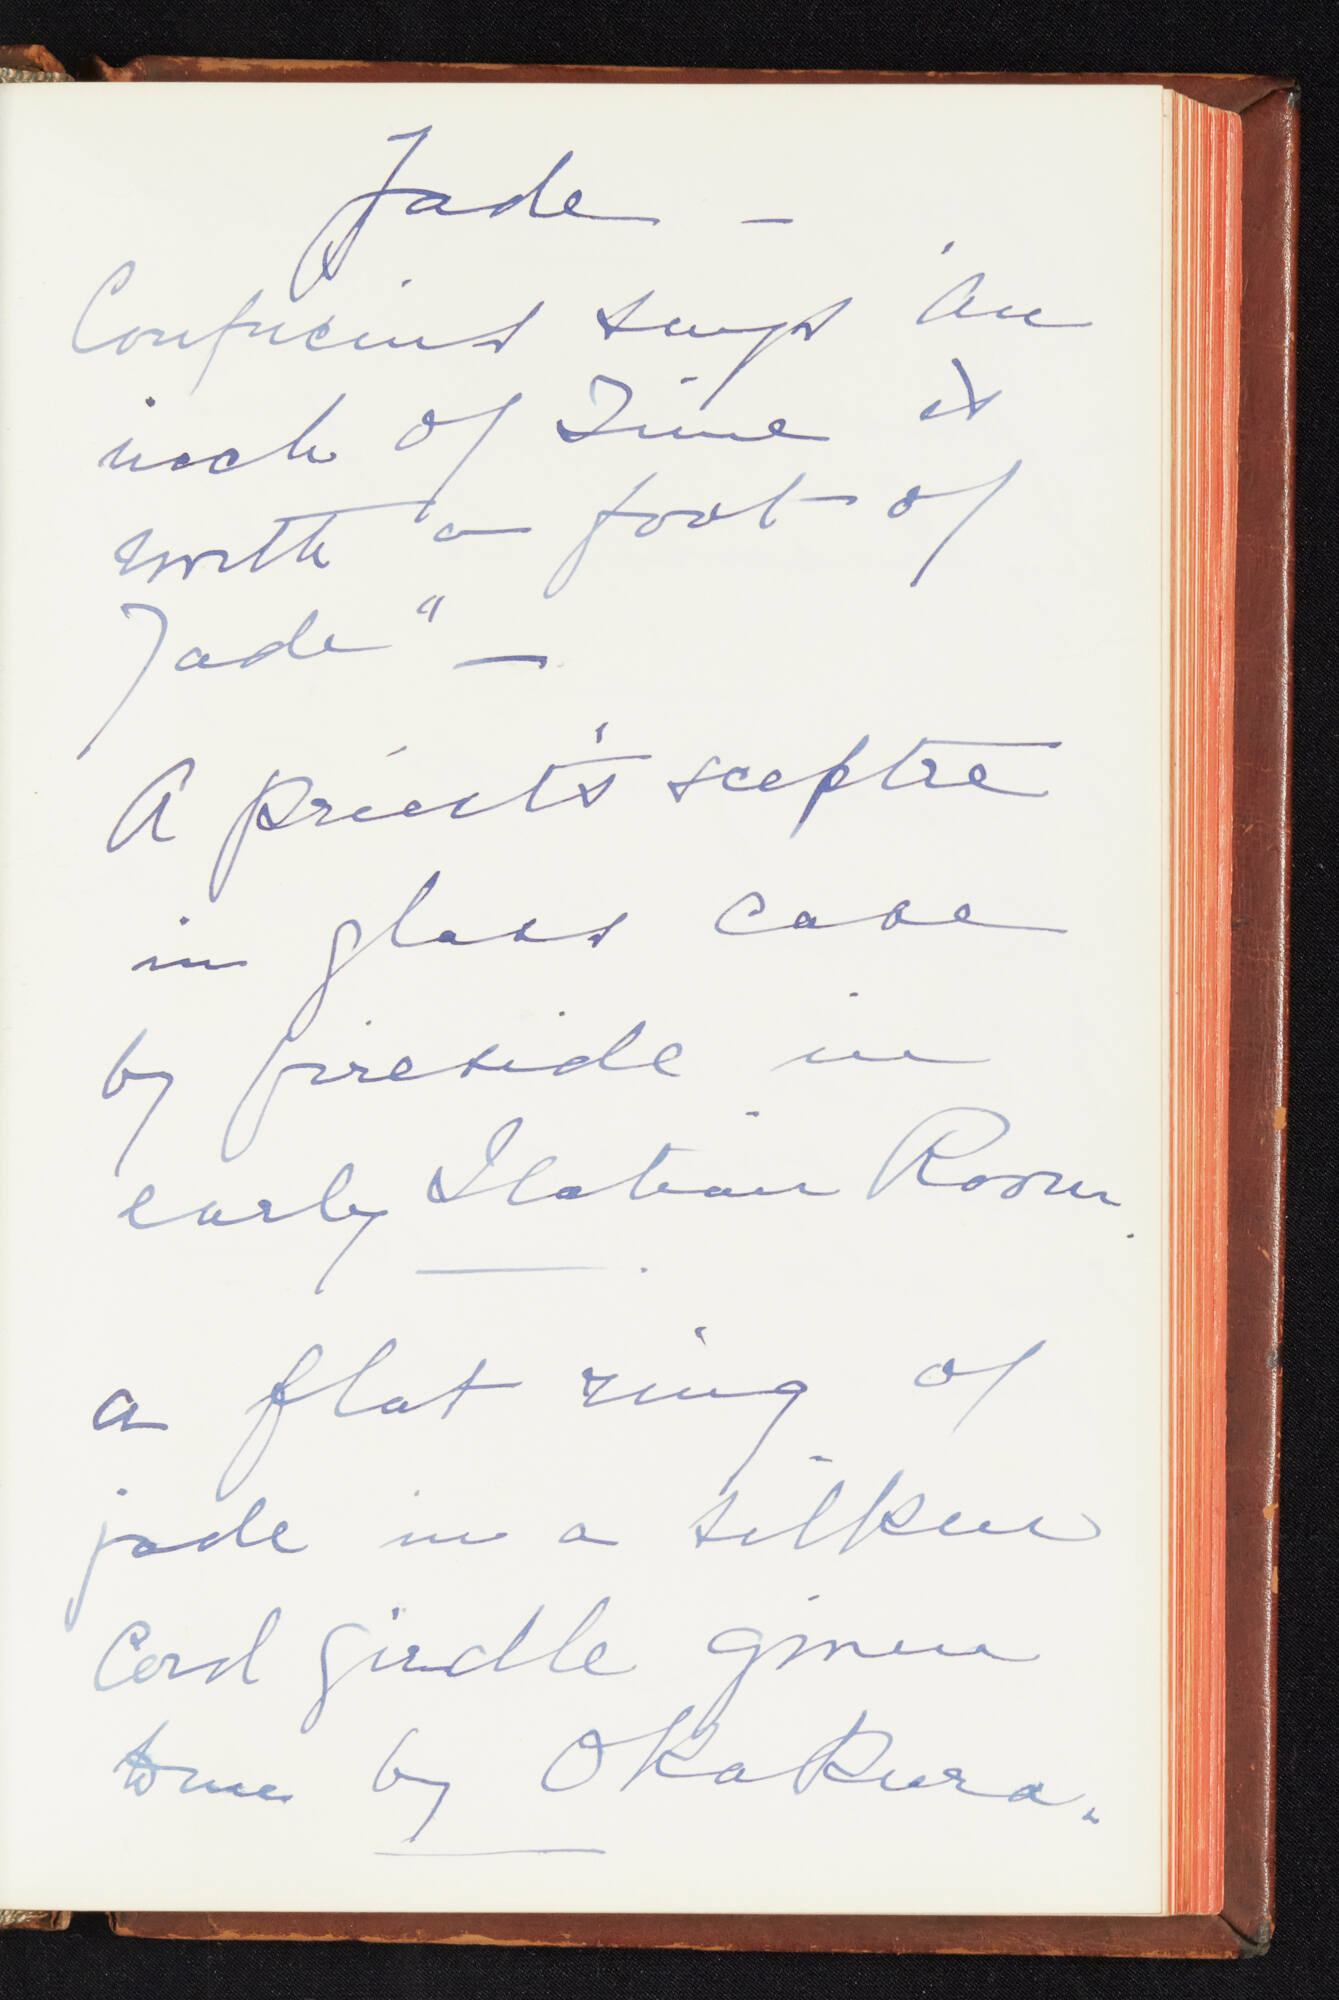 Jade —
Confucius says 'An
inch of Time is
worth a foot of
Jade" —
A priest's sceptre
in glass case
by fireside in
early Italian Room.
a flat ring of
jade in a silken
Cord girdle given
to me by Okakura.